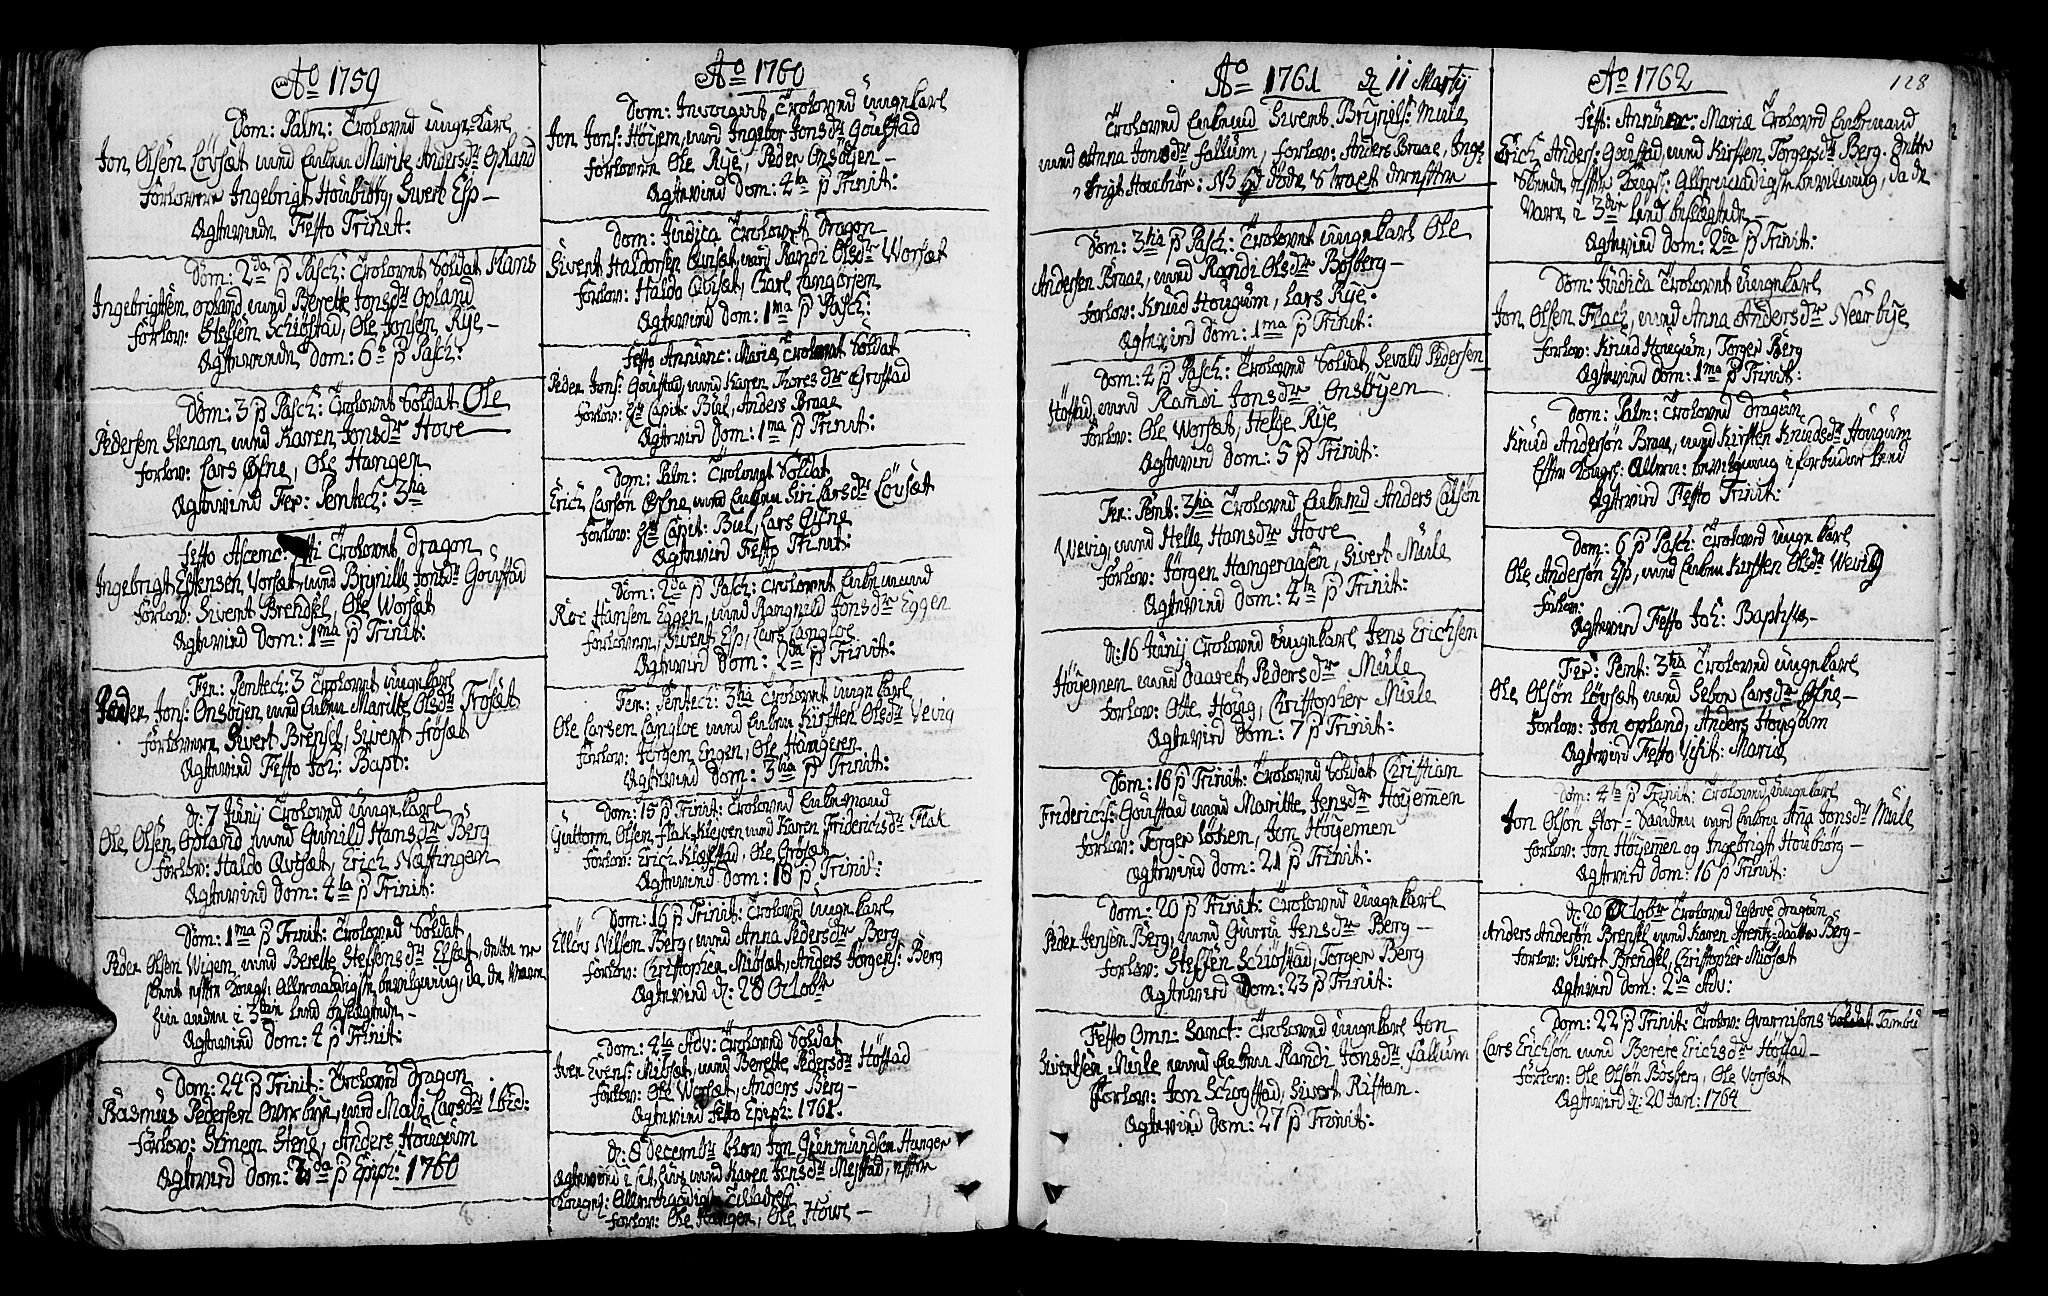 Ao 1759
Dom: Palm: Trolovnd ungekarl
Jon Olsen Løvsæt med Enken Maritte Andersdr Opland
Forlovern Ingebrigt Houbiørg, Sivert Esp –
Ægtevirde Festo Trinit:
Dom: 2da p Pasch: Trolovnt Soldat Hans
Ingebrigtsen opland med Berette Jonsdr Opland
forlov: Steffen Schiøstad, Ole Jonsen Rye –
Ægtevirde Dom: 6te p Pasch:
Dom: 3 p Pasch: Trolovnt Soldat Ole
Pedersen Stenam med Karen Jonsdr Hove
forlov: Lars Øfne, Ole Hangen
Ægtevird Fer: Pentec: 3tia
Festo Ascenc: Trolovnt dragon
Ingebrigt Estensen Vorsæt med Brynille Jonsdr Goustad
forlov: Sivert Brendsel, Ole Worsæt
Ægtevird Dom: 1ma p Trinit:
Fer: Pentec: 3 Trolovnt ungekarl
Peder Jons: Onsøyen med Enken Maritte Olsdr Frøsæt
forlovern Sivert Brensel, Sivert Frøsæt
Ægtevird Festo Joh: Bapt:
d: 7 Junij Trolovnd ungekarl
Ole Olsen Opland med Gunild Hansdr Berg
forlov: Haldo Qvsæt, Erich Næstingen
Ægtevird Dom: 4ta p Trinit:
Dom: 1ma p Trinit: Trolovnd Soldat
Peder Olsen Wigen med Berette Steffensdr Elsæt, dette er
skeet efter Kongl: Allernaadigste bevilgning, da de Vare
hin anden i 3die leed beslegtede –
Ægtevird Dom: 4 p Trinit:
Dom: 24 p Trinit: Trolovnd dragon
Rasmus Pedersen Overbyn, med Mali Larsdr ibid:
forlov: Simen Steng, Anders Hougum
Ægtevird Dom: 2da p Epiph: 1760
Ao 1760
Dom: Invocavit Trolovnd ungekarl
Jon Jons: Høyem, med Ingebor Jonsdr Goustad
forlovern Ole Rye, Peder Onsøyen –
Ægtevird Dom: 4ta p Trinit:
Dom: Judica Trolovnt Dragon
Sivert Haldorsen Qvisæt, med Randi Olsdr Worsæt
forlov: Haldo Qvisæt, Charl Langørjen
Ægtevird Dom: 1ma p Pasch:
Festo Annunc: Mariæ Trolovnt Soldat
Peder Jons: Goustad, med Karen Thoresdr Grøstad
forlov: Hr Capit: Biel, Anders Braae
Ægtevird Dom: 1ma p Trinit:
Dom: Palm: Trolovnt Soldat
Erich Larsøn Øfsne med Enken Siri Larsdr Løvsæt
forlov: Hr Capit: Biel, Lars Øfsne
Ægtevird Festo Trinit:
Dom: 2da p Pasch: Trolovnt Enkemand
Roe Hansen Eggen, med Rangnild Jonsdr Eggen
forlovern, Sivert Esp, Lars Langloe
Ægtevird Dom: 2da p Trinit:
Fer: Pentec: 3tia Trolovnt ungekarl
Ole Larsen Langloe med Enken Kirsten Olsdr Vevig
forlov: Jørgen Engen, Ole Hangeren
Ægtevird Dom: 3tia p Trinit:
Dom: 15 p Trinit: Trolovnd Enkemand
Guttorm Olsen Flak-Kleven med Karen Friderichsdr Flak
forlov: Erich Klæstad, Ole Grøsæt
Ægtevird Dom: 18 p Trinit:
Dom: 16 p Trinit: Trolovnd ungekarl
Elløv Nilsen Berg, med Anna Pedersdr Berg
forlov: Christopher Miøsæt, Anders Jørgens: Berg
Ægtevird d: 28 Octobr
Dom: 4ta Adv: Trolovnd Soldat
Iver Evens: Miøsæt, med Berette Pedersdr Høstad
forlov: Ole Worsæt, Anders Berg –
Ægtevird Festo Epiph: 1761.
d: 8 Decembr blev Jon Guenmundsen Hanger
Ægtevird i sit huus med Karen Jensdr Mestad, efter
Kongl: Allernaadigste Tilladelse
forlov: Ole Hangen, Ole Howe –
Ao 1761 d 11 Martij
Trolovnd Enkemd Sivert Brynels: Mule
med Anna Jonsdr fallum, forlov: Anders Braae, Inge-
brigt Houbiør: NB
Dom: 3tia p Pasch: Trolovnt ungekarl Ole
Andersen Braae, med Randi Olsdr Bosberg –
forlov: Knud Hougum, Lars Rye.
Ægtevird Dom: 1ma p Trinit:
Dom: 4 p Pasch: Trolovnt Soldat Sevald Pedersen
Høstad med Randi Jonsdr Onsøyen
forlov: Ole Worsæt, Helge Rye
Ægtevird Dom: 5 p Trinit:
Fer: Pent: 3tia Trolovnd Enkemd Anders Olsøn
Wevig, med Helle Hansdr Hove
forlov: Jørgen Hangeraasen, Sivert Mule
Ægtevird Dom: 4ta p Trinit:
d: 16 Junij Trolovnd ungekarl Jens Erichsen
Høyemen med Daaret Pedersdr Mule
forlov: Otte Houg, Christopher Mule
Ægtevird Dom: 7 p Trinit:
Dom: 16 p Trinit: Trolovnd Soldat Christian
Friderichs: Goustad med Maritte Jensdr Høyemen
forlov: Torger Løken, Jon Høyemen
Ægtevird Dom: 21 p Trinit:
Dom: 20 p Trinit: Trolovnd ungekarl
Peder Jensen Berg, med Gurru Jensdr Berg –
forlov: Steffen Schiøstad, Torger Berg
Ægtevird Dom: 23 p Trinit:
Festo Omn: Sanct: Trolovnd ungekarl Jon
Sivertsen Mule med Enken Randi Jonsdr fallum
forlov: Jon Schogstad, Sivert Ristan.
Ægtevird Dom: 27 p Trinit:
Ao 1762
128
Fest: Annunc: Mariæ Trolovnd Enkemand
Erich Anders: Goustad, med Kirsten Torgersdr Berg. dette
Skeede efter Kongl: Allernaadigste bevilgning, da de
Vare i 3die leed beslegtede
Ægtevird Dom: 2da p Trinit:
Dom: Judica Trolovnt Ungekarl
Jon Olsen Flach, med Anna Andersdr Nærbye
forlov: Knud Hougum, Torger Berg
Ægtevird Dom: 1ma p Trinit:
Dom: Palm: Trolovnd dragun
Knud Andersøn Braae, med Kirsten Knudsdr Hougum
efter Kongl: Allern: bevilgning i forbuden leed
Ægtevird Festo Trinit:
Dom: 6 p Pasch: Trolovnd ungekarl
Ole Andersøn Esp, med Enken Kirsten Olsdr Wevig
forlov:
Ægtevird Festo Joh: Baptistæ –
Fer: Pent: 3tia Trolovnd ungekarl
Ole Olsøn Løvsæt med Sebor Larsdr Øfsne –
forlov: Jon opland, Anders Hougum
Ægtevird Festo Visit: Mariæ
Dom: 4ta p Trinit: Trolovnd ungekarl
Jon Olsøn Stor-Sanden med Enken Ana Jonsdr Mule
forlov: Jon Høyemen og Ingebrigt Houbiørg –
Ægtevird Dom: 16 p Trinit:
d: 20 Octobr Trolovnd reserve Dragun
Anders Andersøn Brensel med Karen Arentz-daatter Berg –
forlov: Sivert Brensel, Christopher Miøsæt
Ægtevird Dom: 2da Adv:
Dom: 22 p Trinit: Trolov: Gvarnisons Soldat Tambu
Lars Erichsøn med Berete Erichsdr Høstad –
forlov: Ole Olsøn Bosberg, Ole Vorsæt
Ægtevird d: 20 Jan: 1764